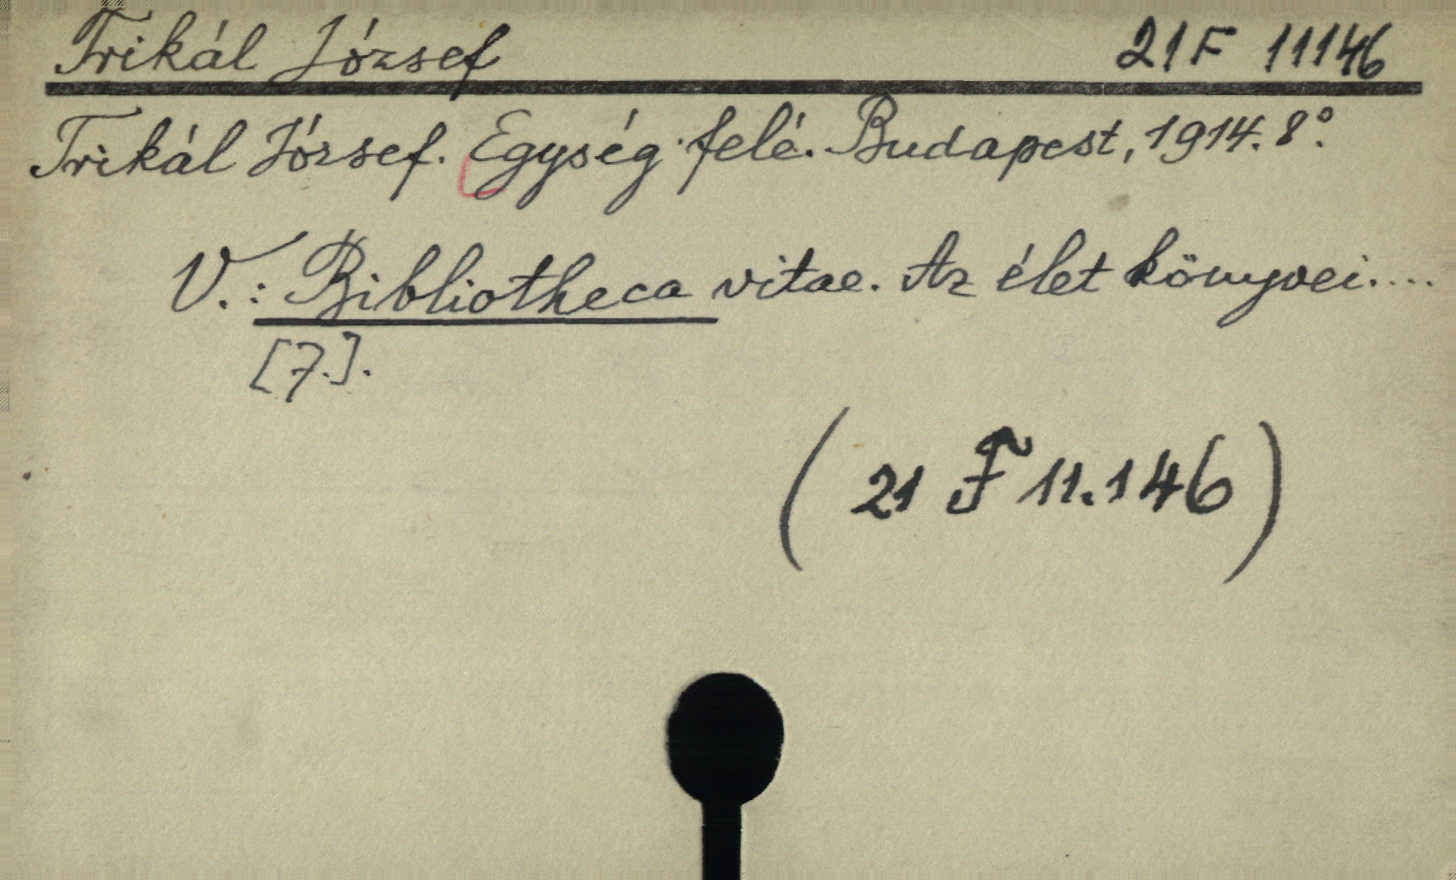 Trikál József 21F 11146
Trikál József. Egység felé. Budapest, 1914. 8°.
V.: Bibliotheca vitae. Az élet könyvei....
[7.].
(21 F 11.146)